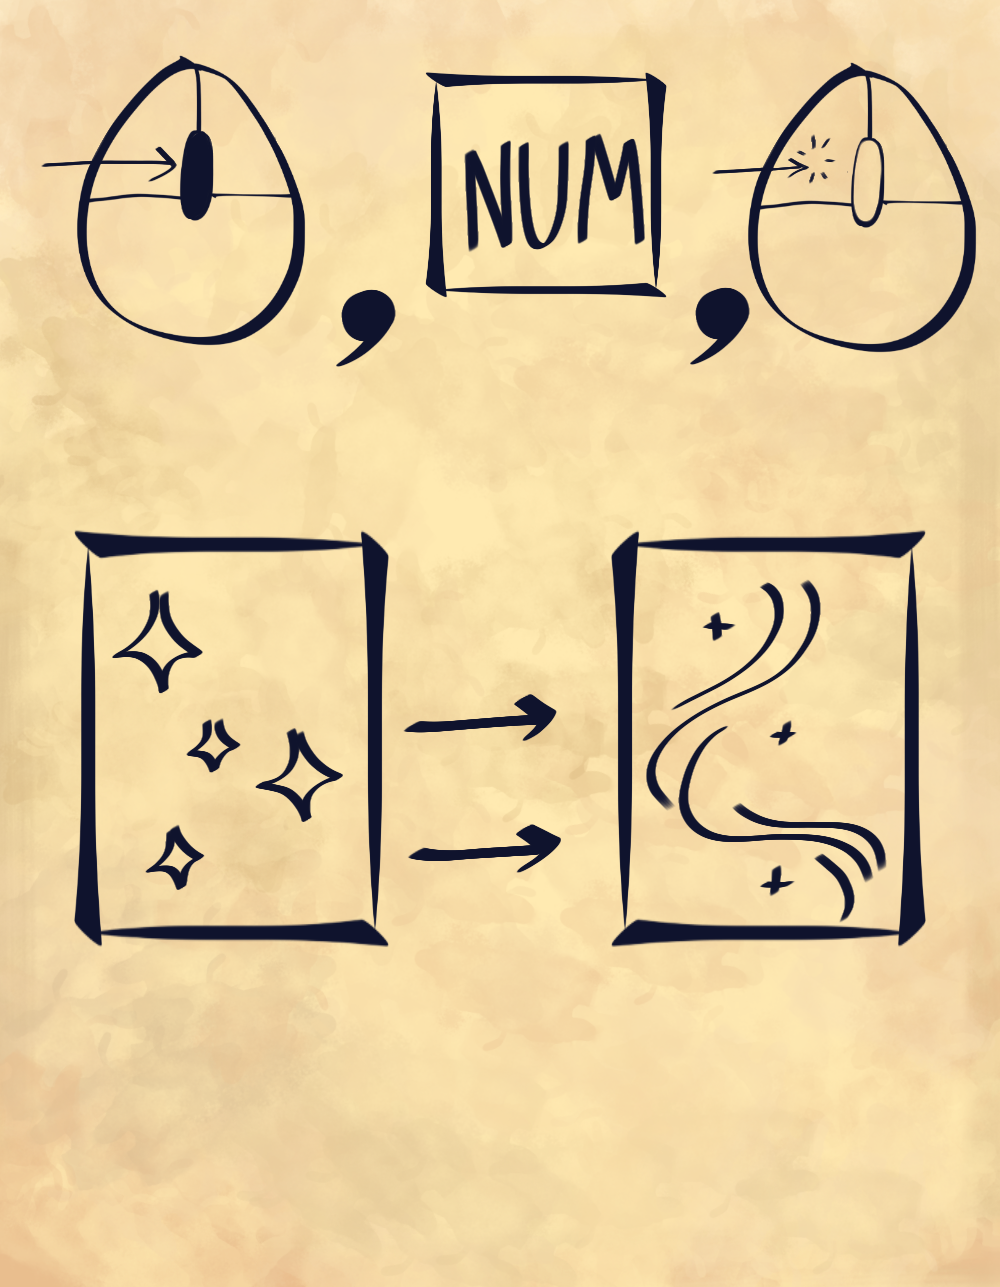 , NUM ,